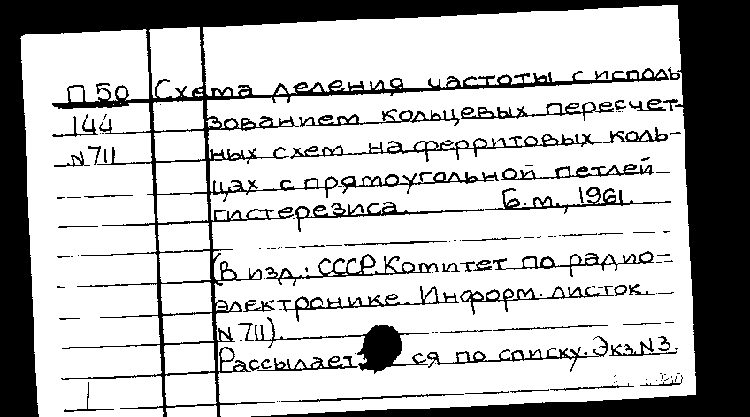 П 50 Схема деления частоты с исполь
144 зованием кольцевых пересчет-
N 711 ных схем на ферритовых коль-
цах с прямоугольной петлей
гистерезиса. Б.м., 1961.
(В изд.: СССР. Комитет по радио-
электронике. Информ. листок.
N 711).
Рассылается по списку. Экз. N3.